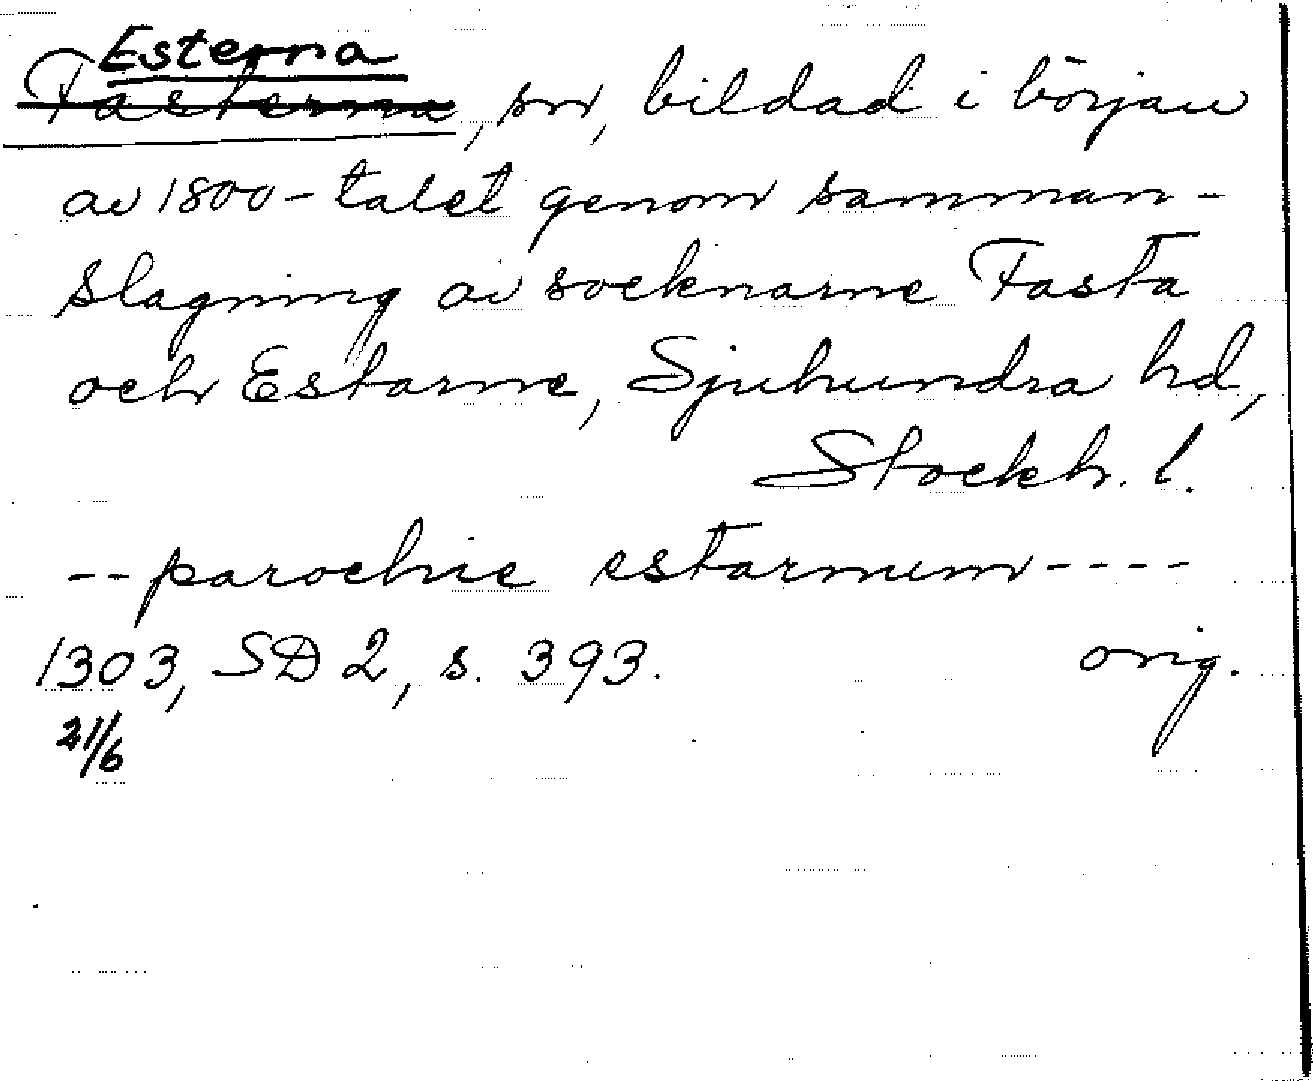 Esterna
Fasterna, sn, bildad i början
av 1800-talet genom samman-
slagning av socknarne Fasta
och Estarne, Sjuhundra hd,
Stockh. l.
-- parochie estarnum ----
1303, SD 2, s. 393. orig.
21/6